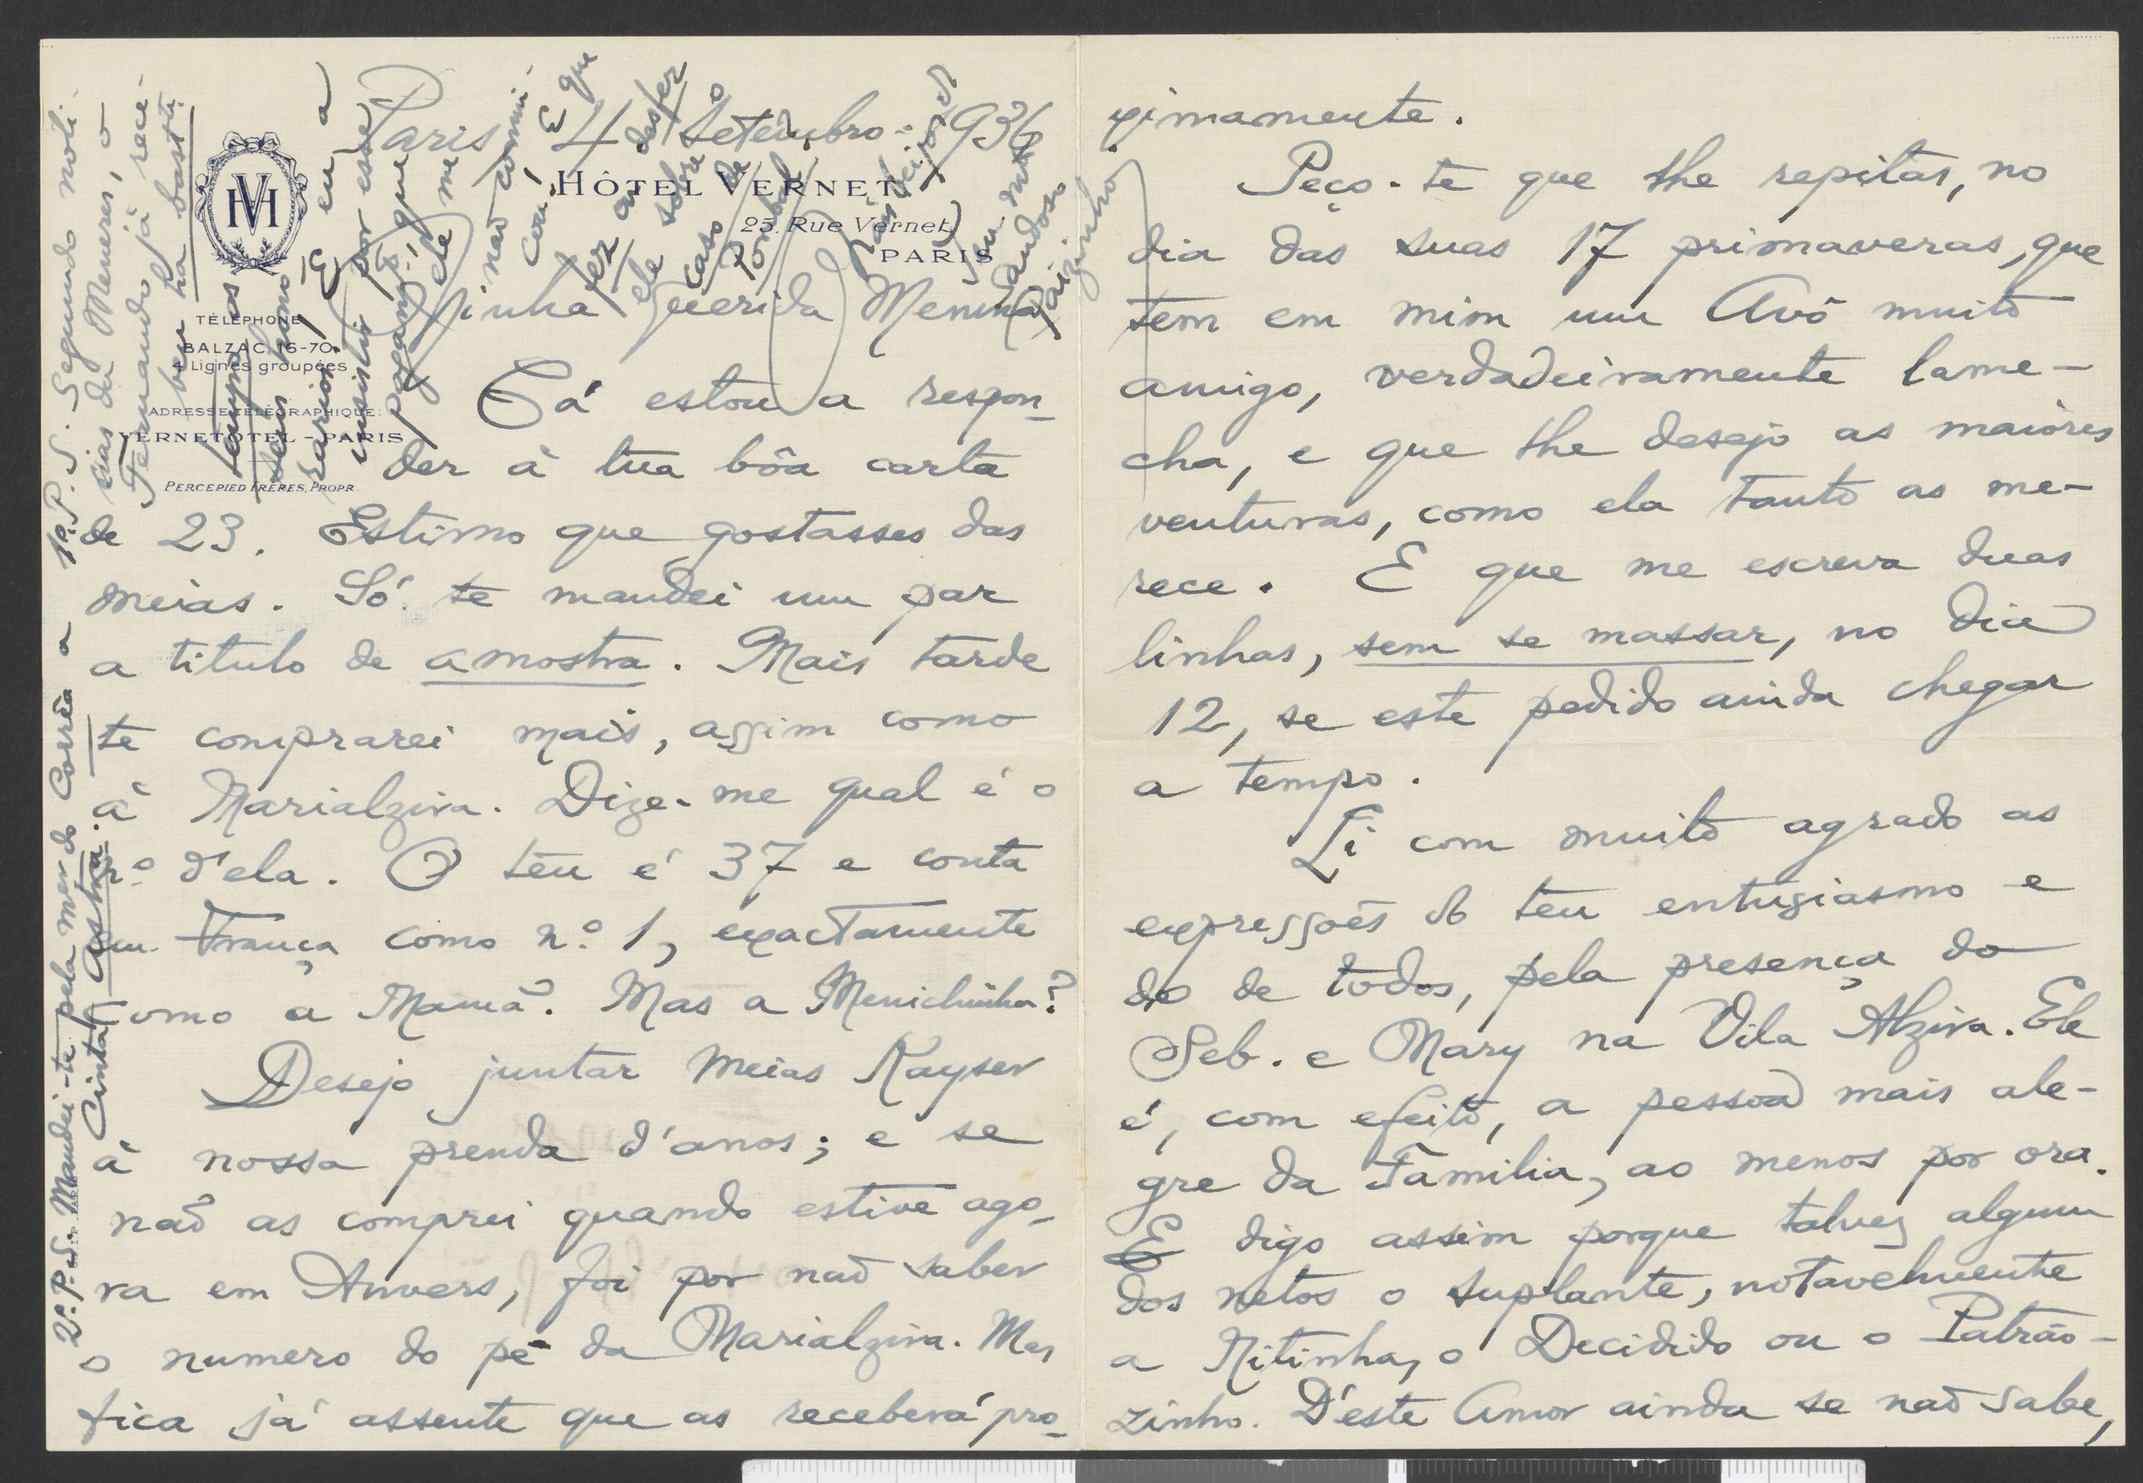 Paris, 4 Setembro - 936
HÔTEL VERNET
25, Rue Vernet
PARIS
TÉLÉPHONE
BALZAC 16-70
4 Lignes groupées
ADRESSE TÉLÉGRAPHIQUE:
VERNETOTEL - PARIS
PERCEPIED FRÈRES, PROPR.
Minha Querida Menina
Cá estou a respon-
der á tua bôa carta
de 23. Estimo que gostasses das
meias. Só te mandei um par
a titulo de amostra. Mais tarde
te comprarei mais, assim como
á Marialzira. Dize-me qual é o
nº d'ela. O teu é 37 e conta
em França como nº 1, exactamente
como a Mamã. Mas a Menichinha?
Desejo juntar meias Kayser
á nossa prenda d'anos; e se
naõ as comprei quando estive ago-
ra em Anvers, foi por naõ saber
o numero do pé da Marialzira. Mas
fica já assente que as receberá pro-
ximamente.
Peço-te que lhe repitas, no
dia das suas 17 primaveras, que
tem em mim um Avô muito
amigo, verdadeiramente lame-
cha, e que lhe desejo as maióres
venturas, como ela tanto as me-
rece. E que me escreva duas
linhas, sem se massar, no dia
12, se este pedido ainda chegar
a tempo.
Li com muito agrado as
expressoẽs do teu entusiasmo e
do de todos, pela presença do
Seb. e Mary na Vila Alzira. Ele
é, com efeito, a pessoa mais ale-
gre da Familia, ao menos por ora.
E digo assim porque talvez algum
dos netos o suplante, notavelmente
a Nitinha, o Decidido ou o Patrão-
zinho. D'este Amor ainda se naõ sabe,
1º. P.S. Segundo noti-
cias da Meneres, o
Fernando já rece-
beu ha bastte.
tempo os
seus hono-
rarios. E eu a
insistir por esse
pagamto.! E que
ele me
naõ comuni-
cou! E que
ele sobre o
caso de
Pombal
Seu mto
saudoso
Paizinho
2º. P.S. Mandei-te pela mer do Corrêa a
Cinta Astra.